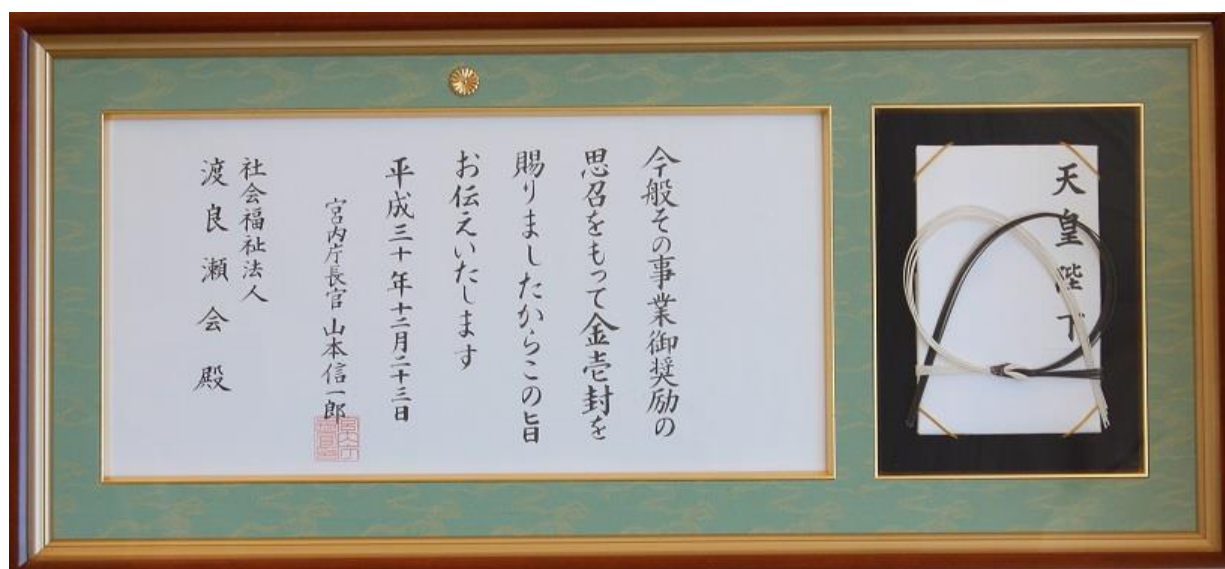 天皇陛下
今般その事業御奨励の
思召をもって金壱封を
賜りましたからこの旨
お伝えいたします
平成三十年十二月二十三日
宮内庁長官 山本信一郎
社会福祉法人
渡良瀬会殿